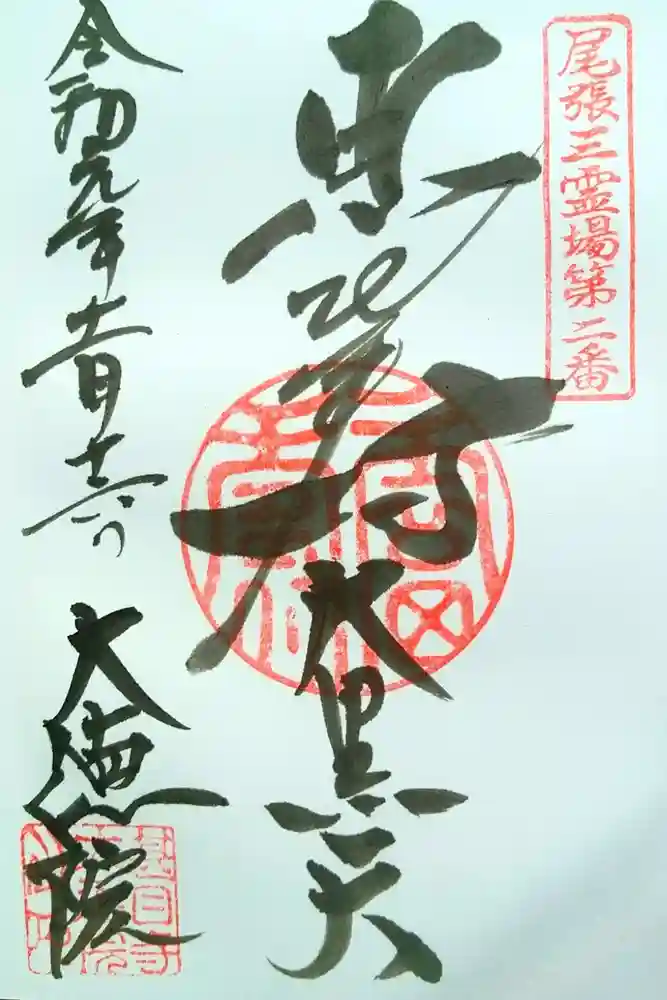 尾張三霊場第二番
恵比寿
大黒天
令和元年十一月十六日
大徳院